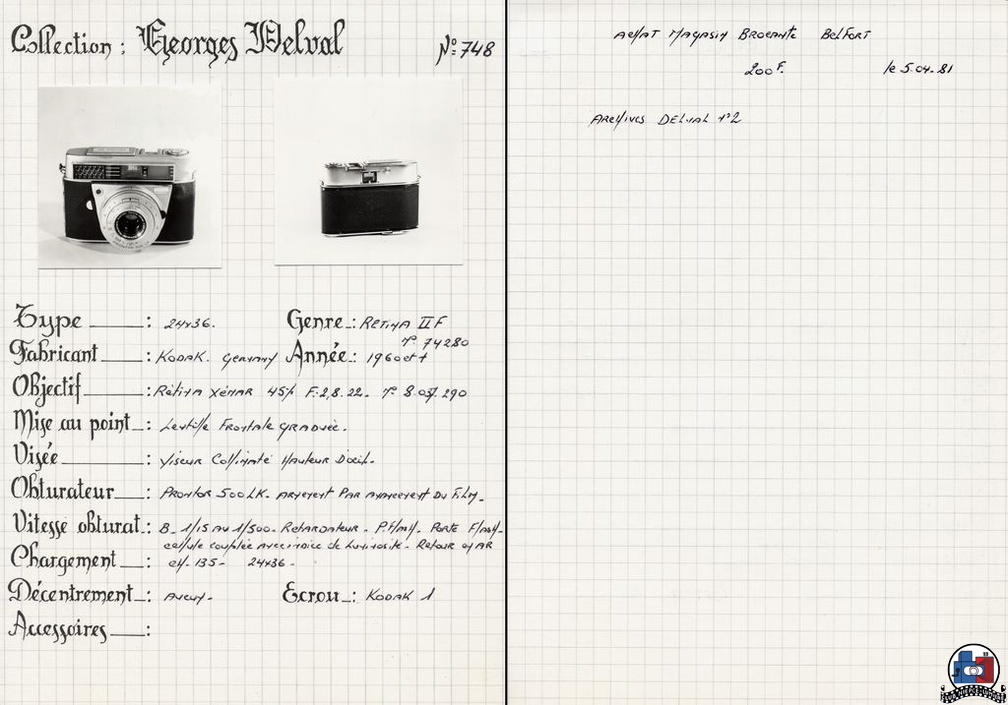 Collection : Georges Delval N° 748
Type : 24x36. Genre : Retina IIF
N° 74280
Fabricant : KODAK. Germany Année : 1960
Objectif : Rétina Xénar 45 F:2,8.22. N° 290
Mise au point : Lentille Frontale graduée.
Visée : Viseur Collimaté Hauteur D'oeil.
Obturateur : Prontor 500LK. Armement Par avancement Du Film.
Vitesse obturat. : B_ 1/15 AU 1/500_ Retardateur. P.Flash. Porte Flash.
cellule couplée avec indice de Luminosité. Retour
Chargement : ch. 135_ 24x36_
Décentrement : Aucun. Ecrou : KODAK 1
Accessoires :
ACHAT MAGASIN BROCANTE BELFORT
200F. le 5.04.81
ARCHIVES DELVAL N°2